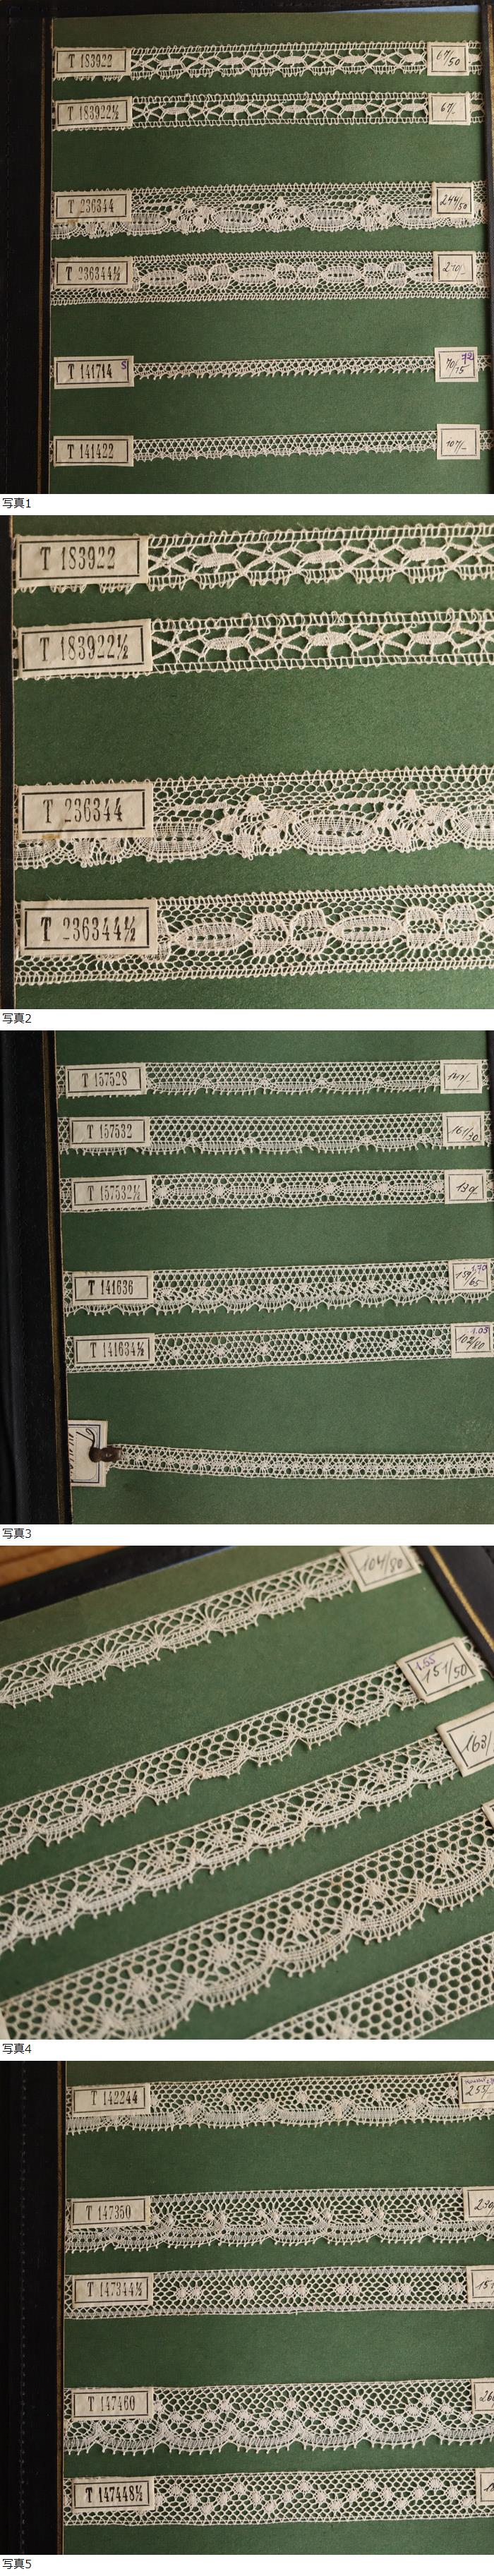 T 183922
67/50
T 183922½
67/-
T 236344
244/50
T 236344½
T 141714
S
72
70/75
T 141422
107/-
写真1
T 183922
T 183922½
T 236344
T 236344½
写真2
T 157528
T 157532
161/50
T 157532½
T 141636
1.70
T 141634½
1.03
写真3
104/80
1.55
151/50
163/
写真4
T 142244
T 147350
T 147344½
T 147460
T 147448½
写真5